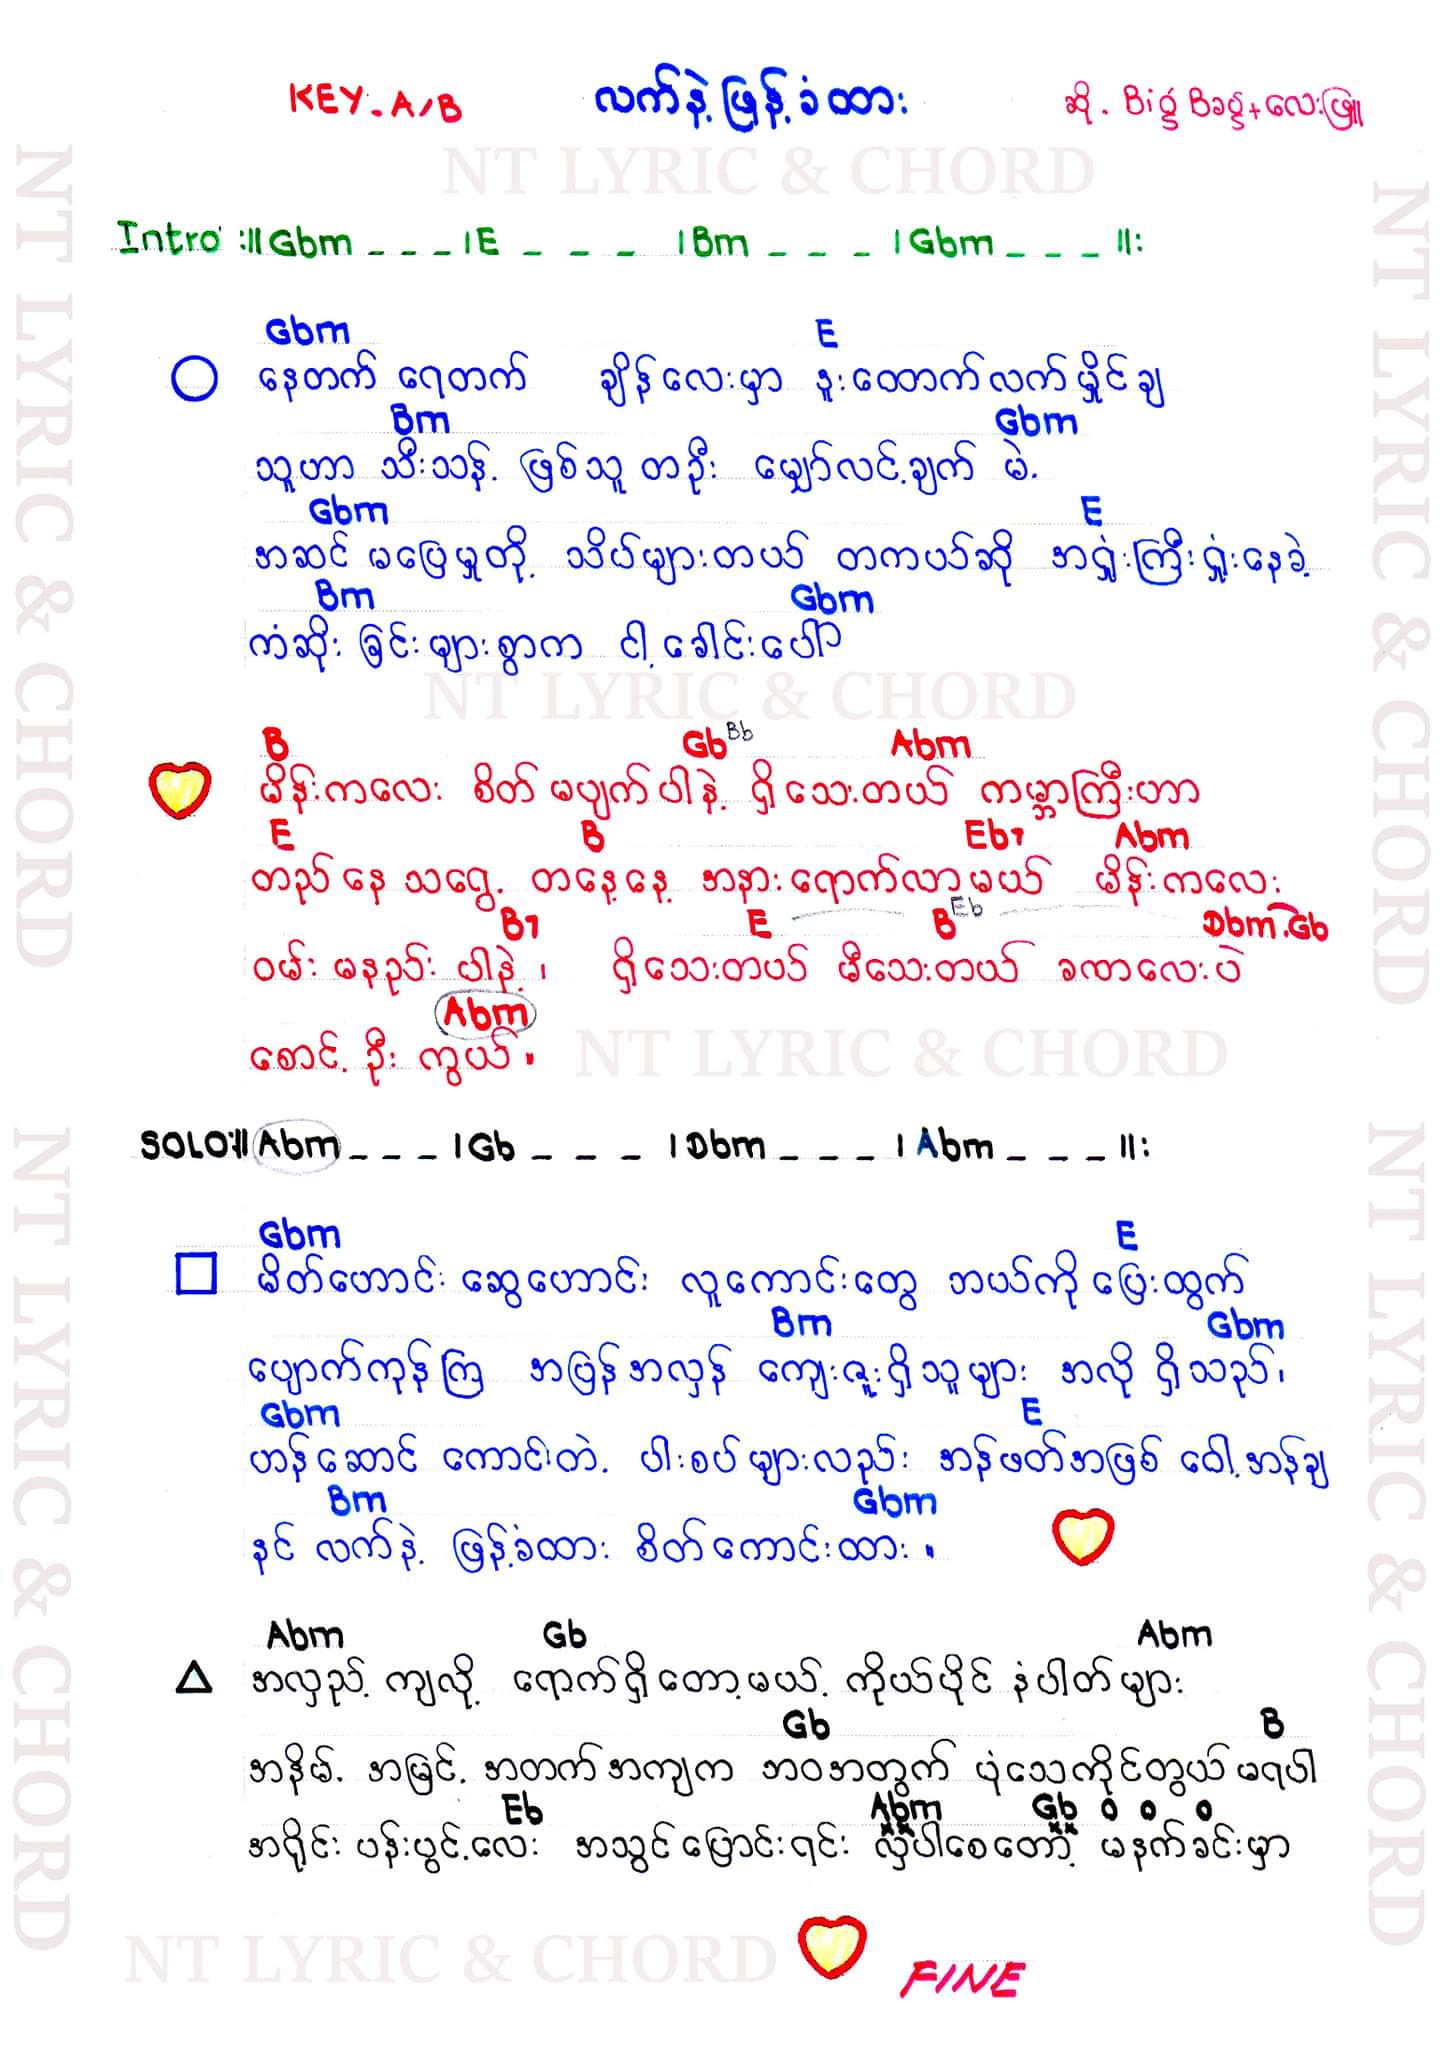 KEY-A/B လက်နဲ့ဖြန့်ခံထား ဆို. Big Bag + လေးဖြူ
NT LYRIC & CHORD
Intro :||Gbm _ _ _ |E _ _ _ |Bm _ _ _ |Gbm _ _ _ ||:
Gbm E
နေတက် ရေတက် ချိန်လေးမှာ နူးထောက်လက်မှိုင်ချ
Bm Gbm
သူဟာ သီးသန့် ဖြစ်သူ တဦး မျှော်လင့်ချက် မဲ့
Gbm E
အဆင် မပြေမှုတို့ သိပ်များတယ် တကယ်ဆို အရှုံးကြီးရှုံးနေခဲ့
Bm Gbm
ကံဆိုး ခြင်းများစွာက ငါ့ခေါင်းပေါ်
NT LYRIC & CHORD
B Gb Bb Abm
မိန်းကလေး စိတ်မပျက်ပါနဲ့ ရှိသေးတယ် ကမ္ဘာကြီးဟာ
E B Eb7 Abm
တည်နေသရွေ့ တနေ့နေ့ အနားရောက်လာမယ် မိန်းကလေး
B7 E B Eb Dbm.Gb
ဝမ်းမနည်းပါနဲ့၊ ရှိသေးတယ် မီသေးတယ် ခဏလေးပဲ
Abm
စောင့်ဦးကွယ်။
NT LYRIC & CHORD
SOLO:||Abm _ _ _ |Gb _ _ _ |Dbm _ _ _ |Abm _ _ _ ||:
Gbm E
မိတ်ဟောင်း ဆွေဟောင်း လူကောင်းတွေ ဘယ်ကိုပြေးထွက်
Bm Gbm
ပျောက်ကုန်ကြ အပြန်အလှန် ကျေးဇူးရှိသူများ အလိုရှိသည်၊
Gbm E
ဟန်ဆောင် ကောင်းတဲ့ ပါးစပ်များလည်း အန်ဖတ်အဖြစ် ဝေါ့အန်ချ
Bm Gbm
နင် လက်နဲ့ ဖြန့်ခံထား စိတ်ကောင်းထား။
Abm Gb Abm
အလှည့်ကျလို့ ရောက်ရှိတော့မယ့် ကိုယ်ပိုင်နံပါတ်များ
Gb B
အနိမ့် အမြင့် အတက်အကျက ဘဝအတွက် ပုံသေကိုင်တွယ်မရပါ
Eb Abm Gb o o o
အရိုင်းပန်းပွင့်လေး အသွင်ပြောင်းရင်း လှပါစေတော့ မနက်ခင်းမှာ
NT LYRIC & CHORD
FINE
NT LYRIC & CHORD
NT LYRIC & CHORD
NT LYRIC & CHORD
NT LYRIC & CHORD